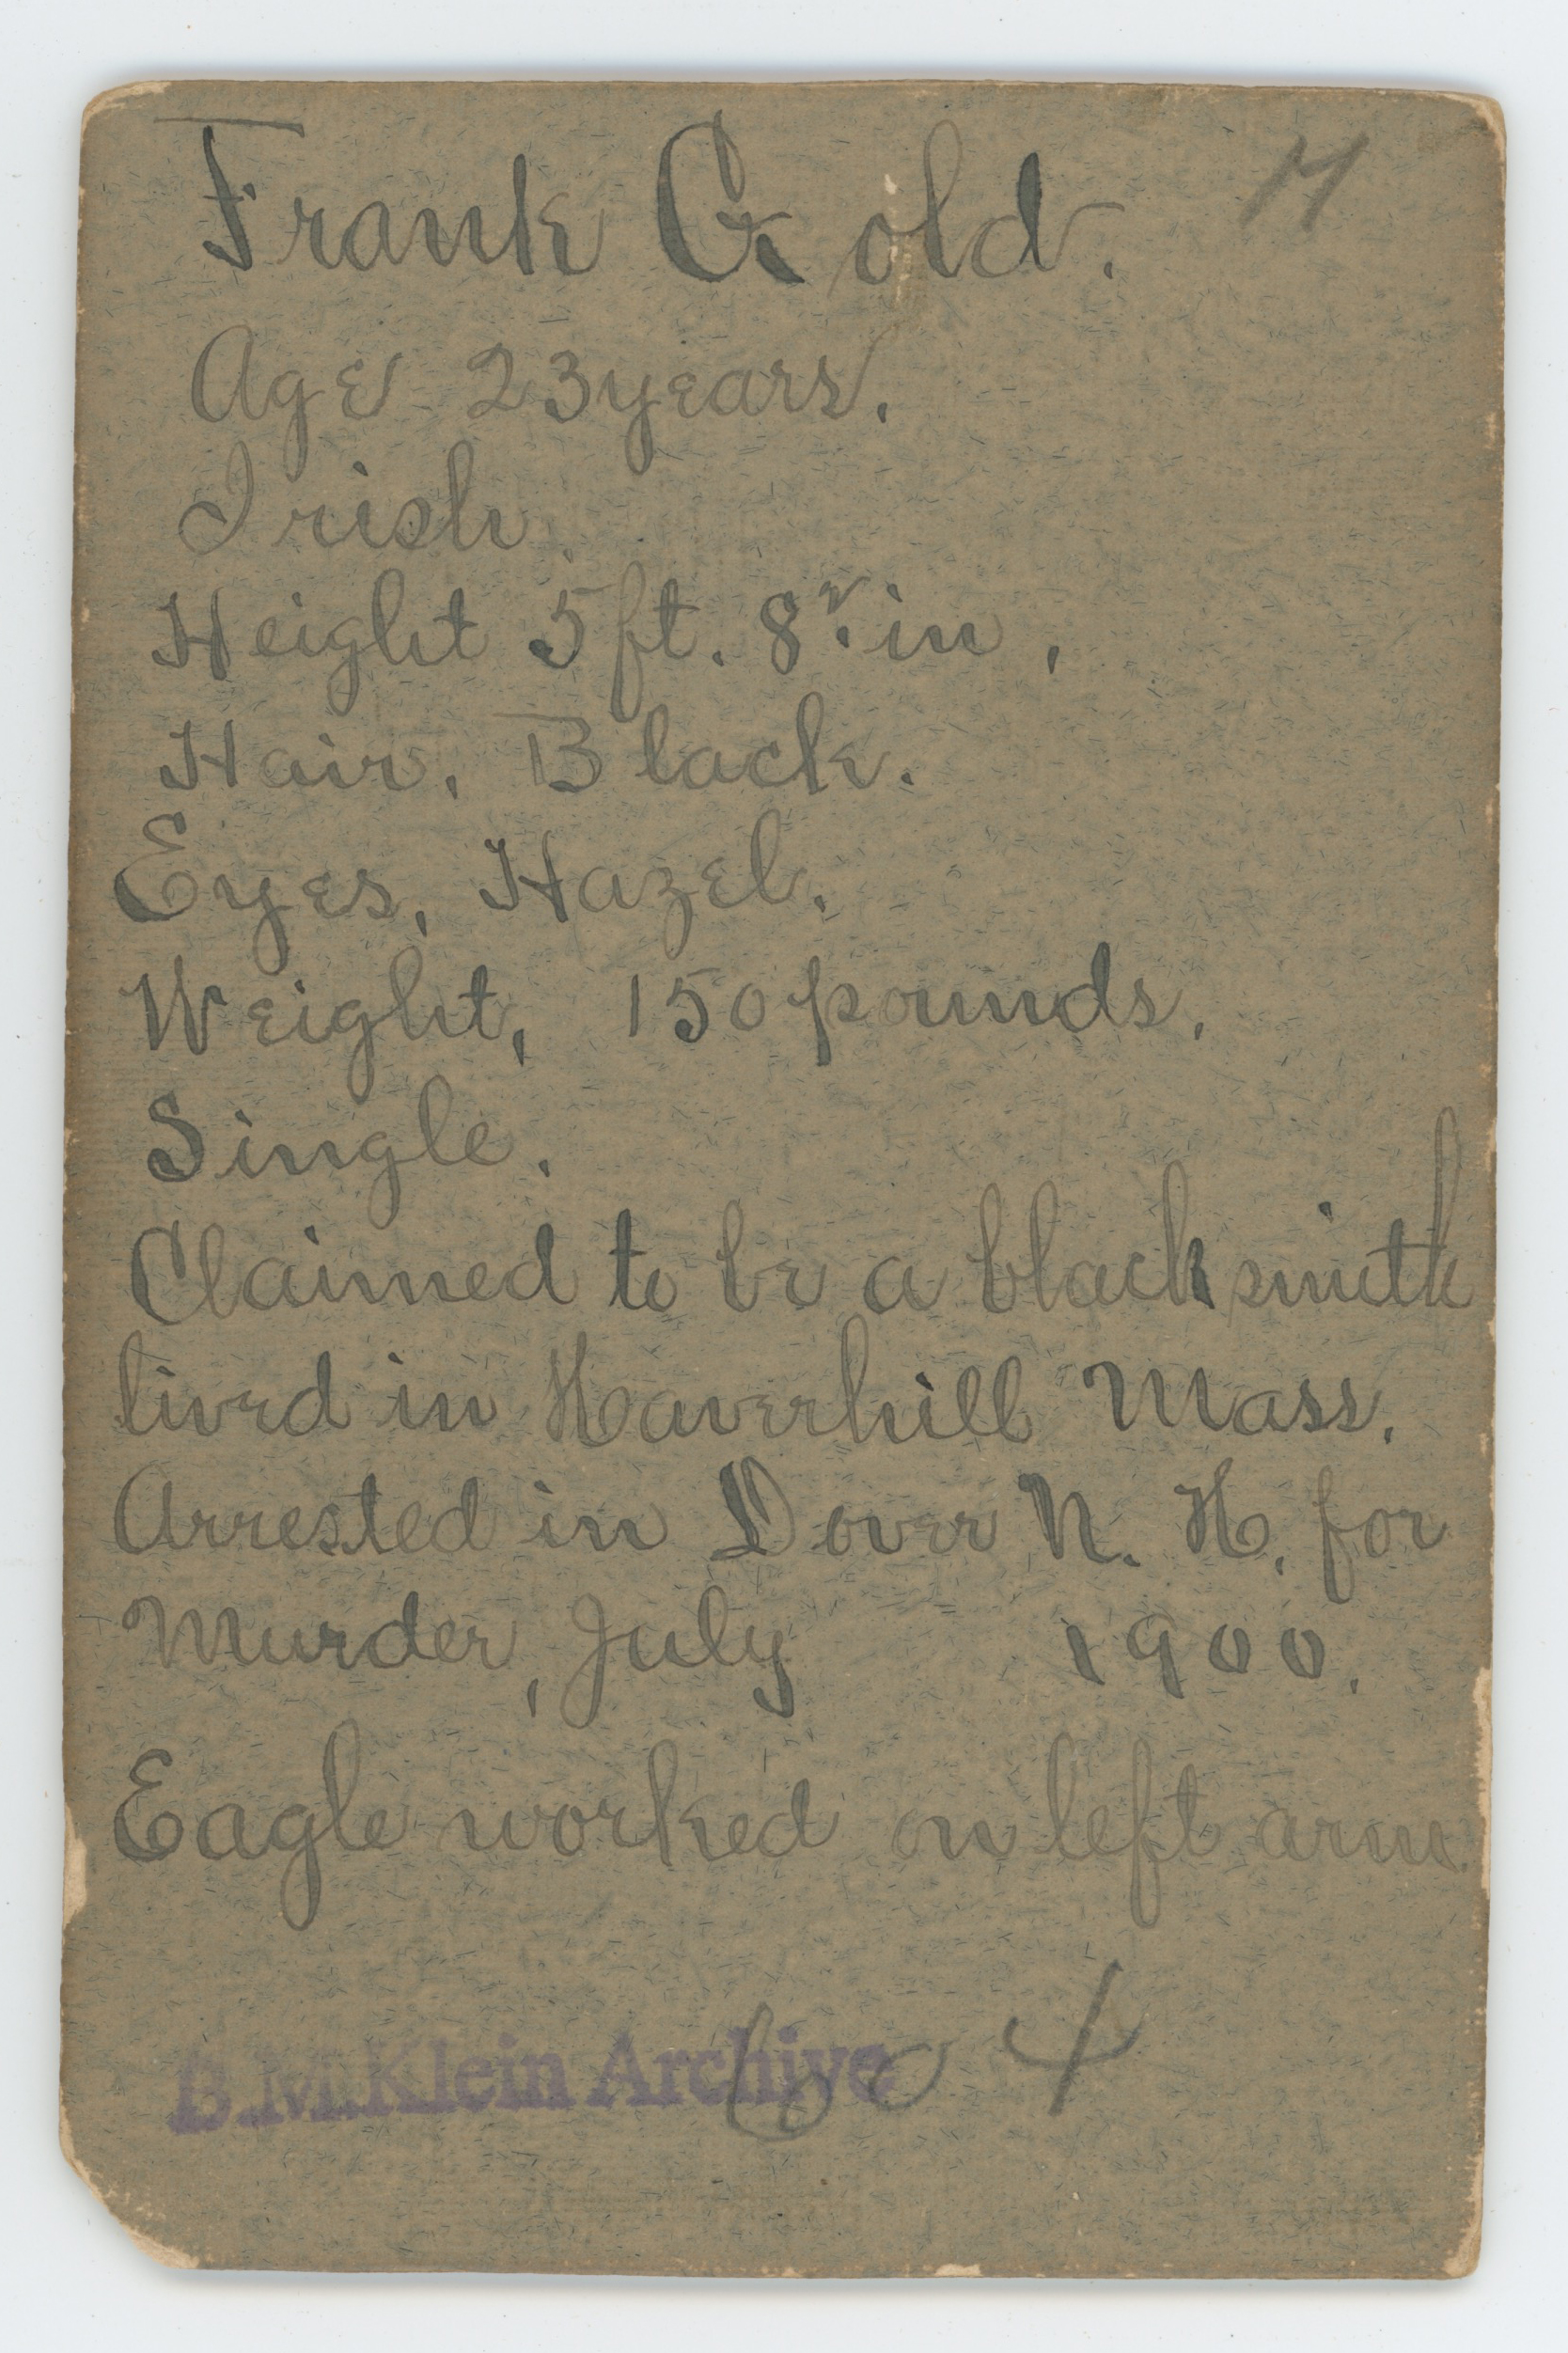 Frank Gold. M
Age 23 years.
Irish.
Height 5 ft. 8 in.
Hair, Black.
Eyes, Hazel.
Weight, 150 pounds.
Single.
Claimed to be a blacksmith
lived in Haverhill Mass.
Arrested in Dover N. H. for
Murder, July 1900.
Eagle worked on left arm.
B.M.Klein Archive